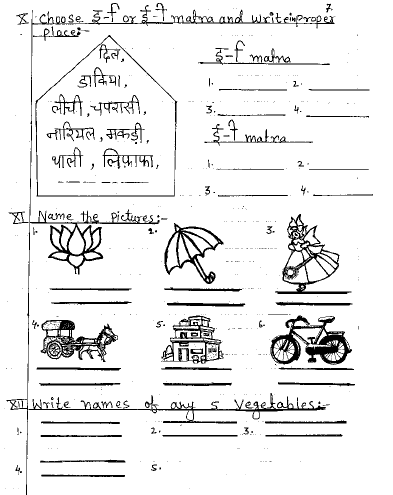 7.
X Choose इ-ि or ई-ी matra and write in proper
place:-
दिल,
डाकिया,
लीची, चपरासी,
नारियल, मकड़ी,
थाली, लिफ़ाफ़ा,
इ-ि matra
1. 2.
3. 4.
ई-ी matra
1. 2.
3. 4.
XI Name the pictures:-
1. 2. 3.
4. 5. 6.
XII Write names of any 5 vegetables:-
1. 2. 3.
4. 5.